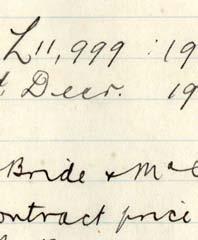 £11,999 : 19
Decr. 19
Bride & Mc
ontract price